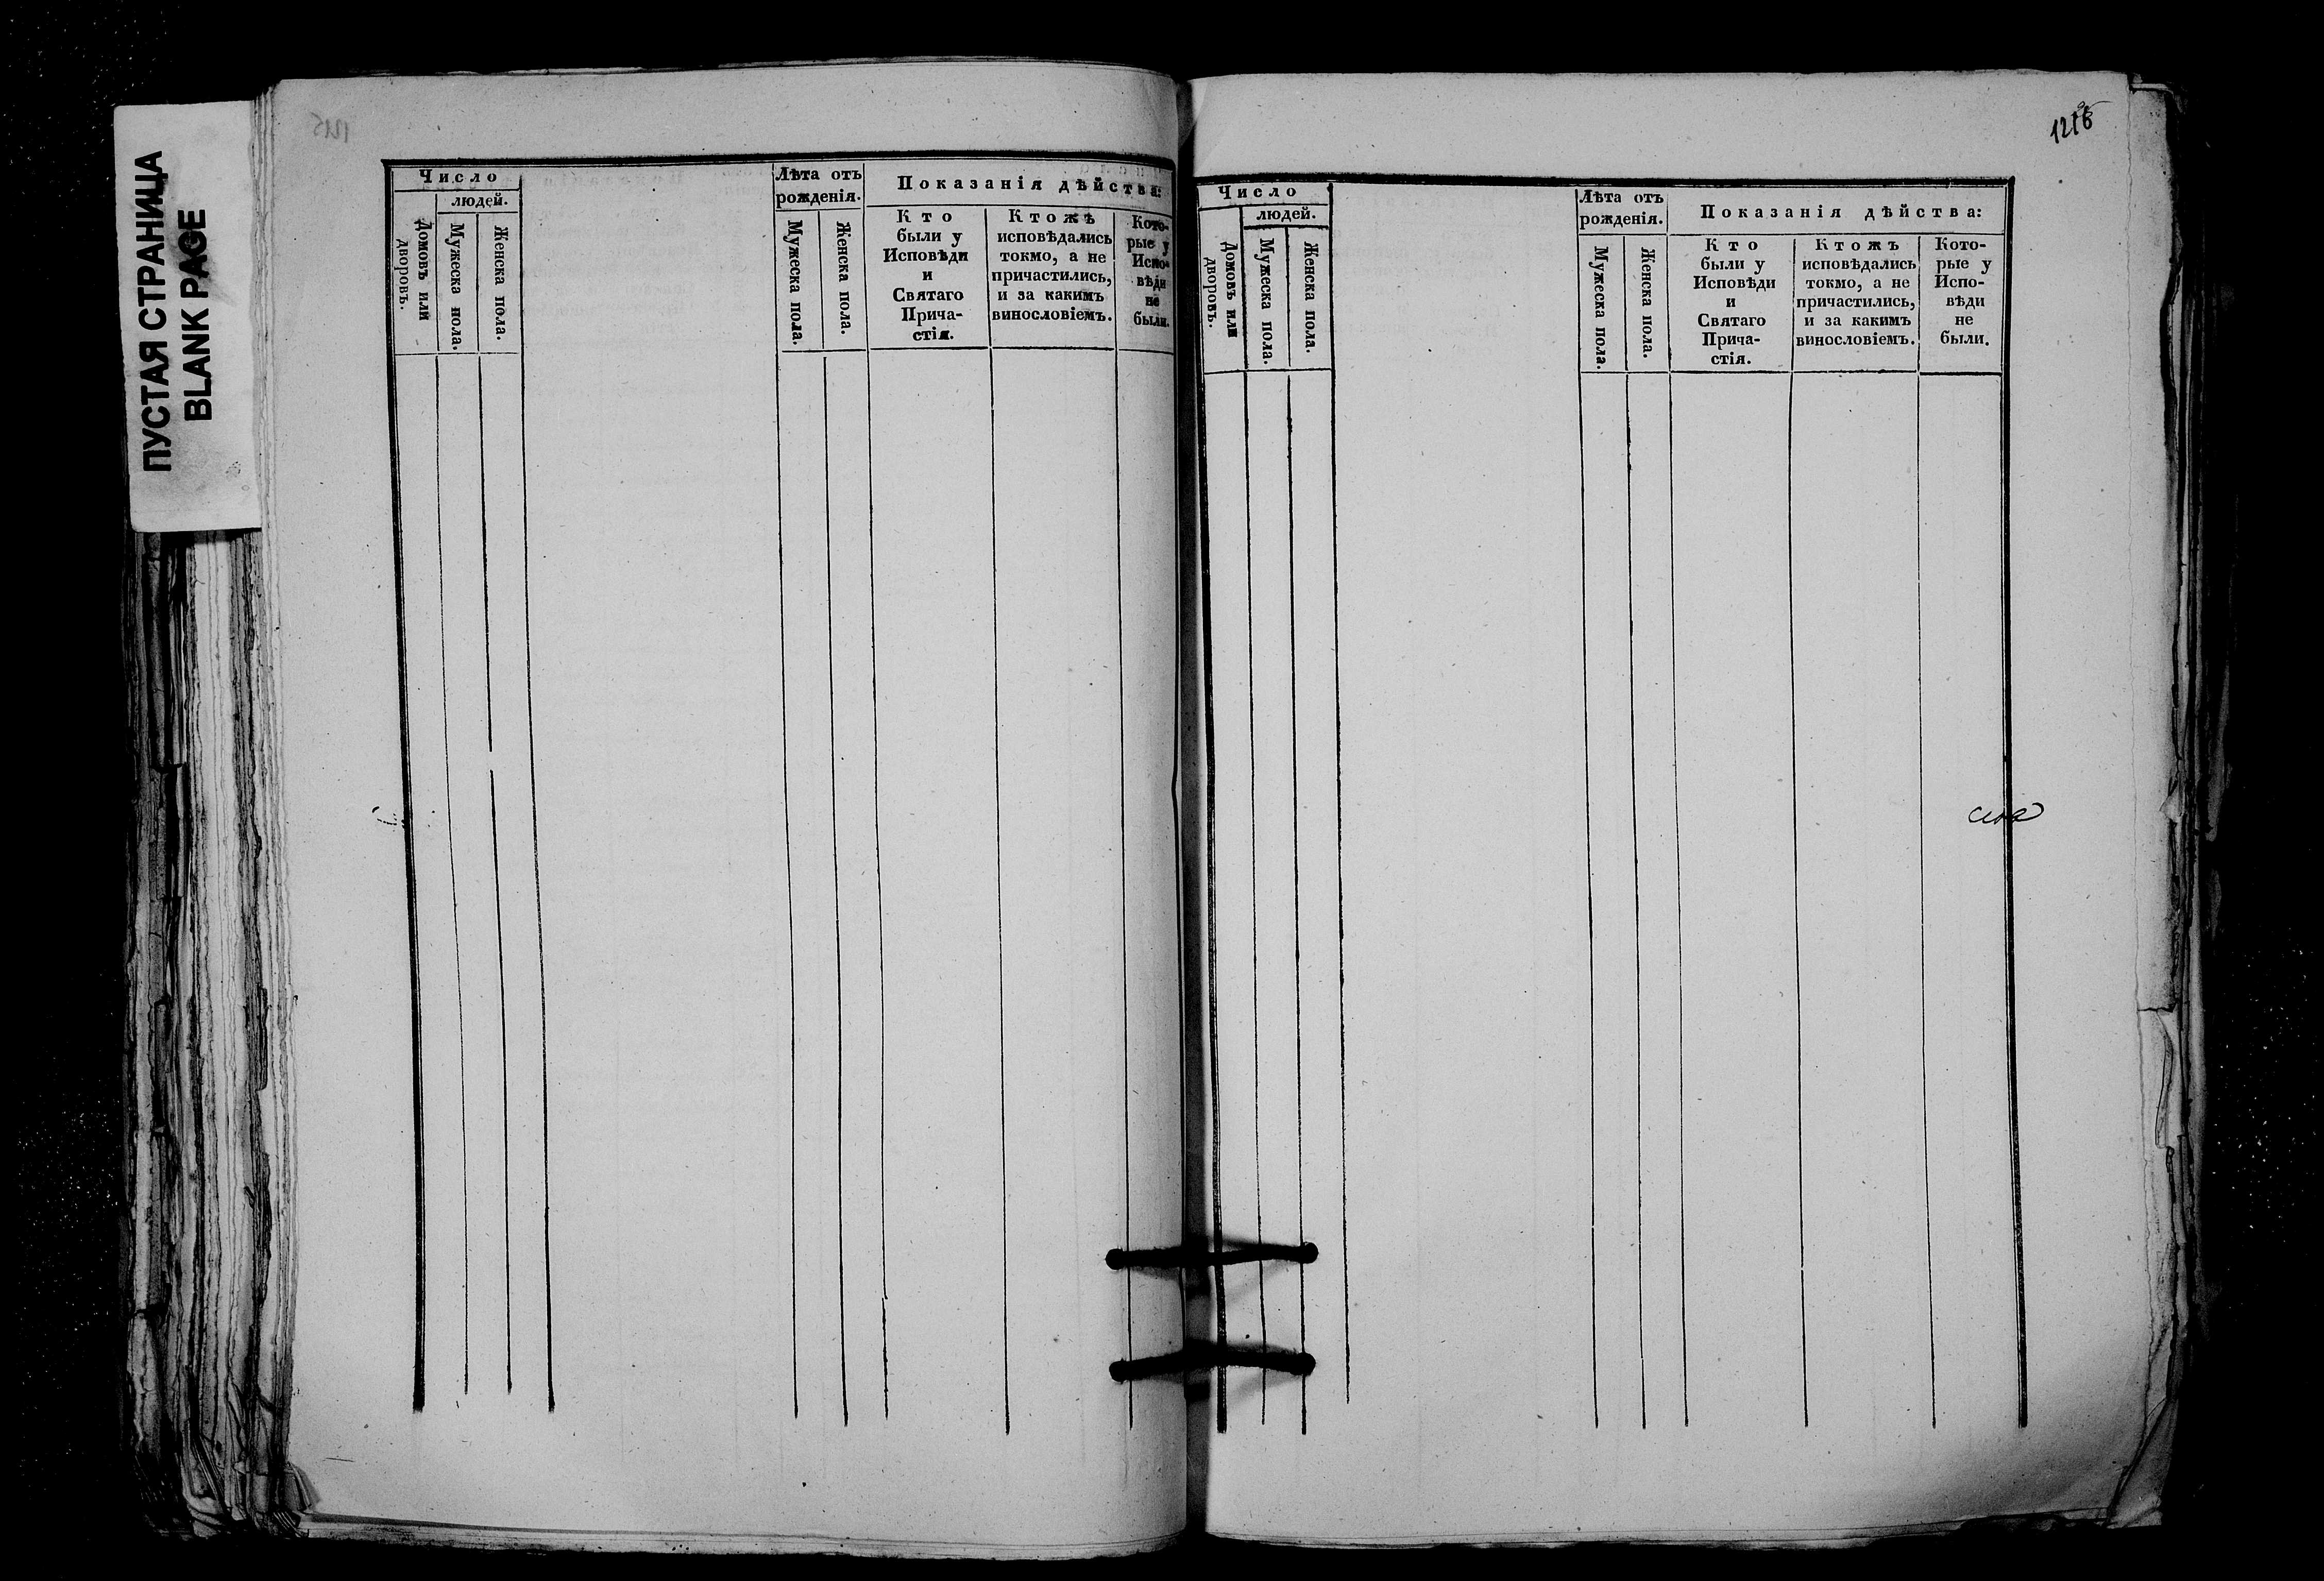 ПУСТАЯ СТРАНИЦА
BLANK PAGE
Число
людей.
Домовъ или дворовъ.
Мужеска пола.
Женска пола.
Лѣта отъ
рожденія.
Мужеска пола.
Женска пола.
Показанія дѣйства:
Кто
были у
Исповѣди
и
Святаго
Прича-
стія.
Ктожъ
исповѣдались
токмо, а не
причастились,
и за какимъ
винословіемъ.
Кото-
рые у
Испо-
вѣди
не
были.
Число
людей.
Домовъ или дворовъ.
Мужеска пола.
Женска пола.
Лѣта отъ
рожденія.
Мужеска пола.
Женска пола.
Показанія дѣйства:
Кто
были у
Исповѣди
и
Святаго
Прича-
стія.
Ктожъ
исповѣдались
токмо, а не
причастились,
и за какимъ
винословіемъ.
Кото-
рые у
Испо-
вѣди
не
были.